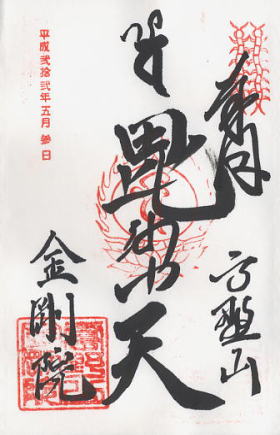 奉拝
高野山
毘沙門天
金剛院
平成弐拾弐年五月参日